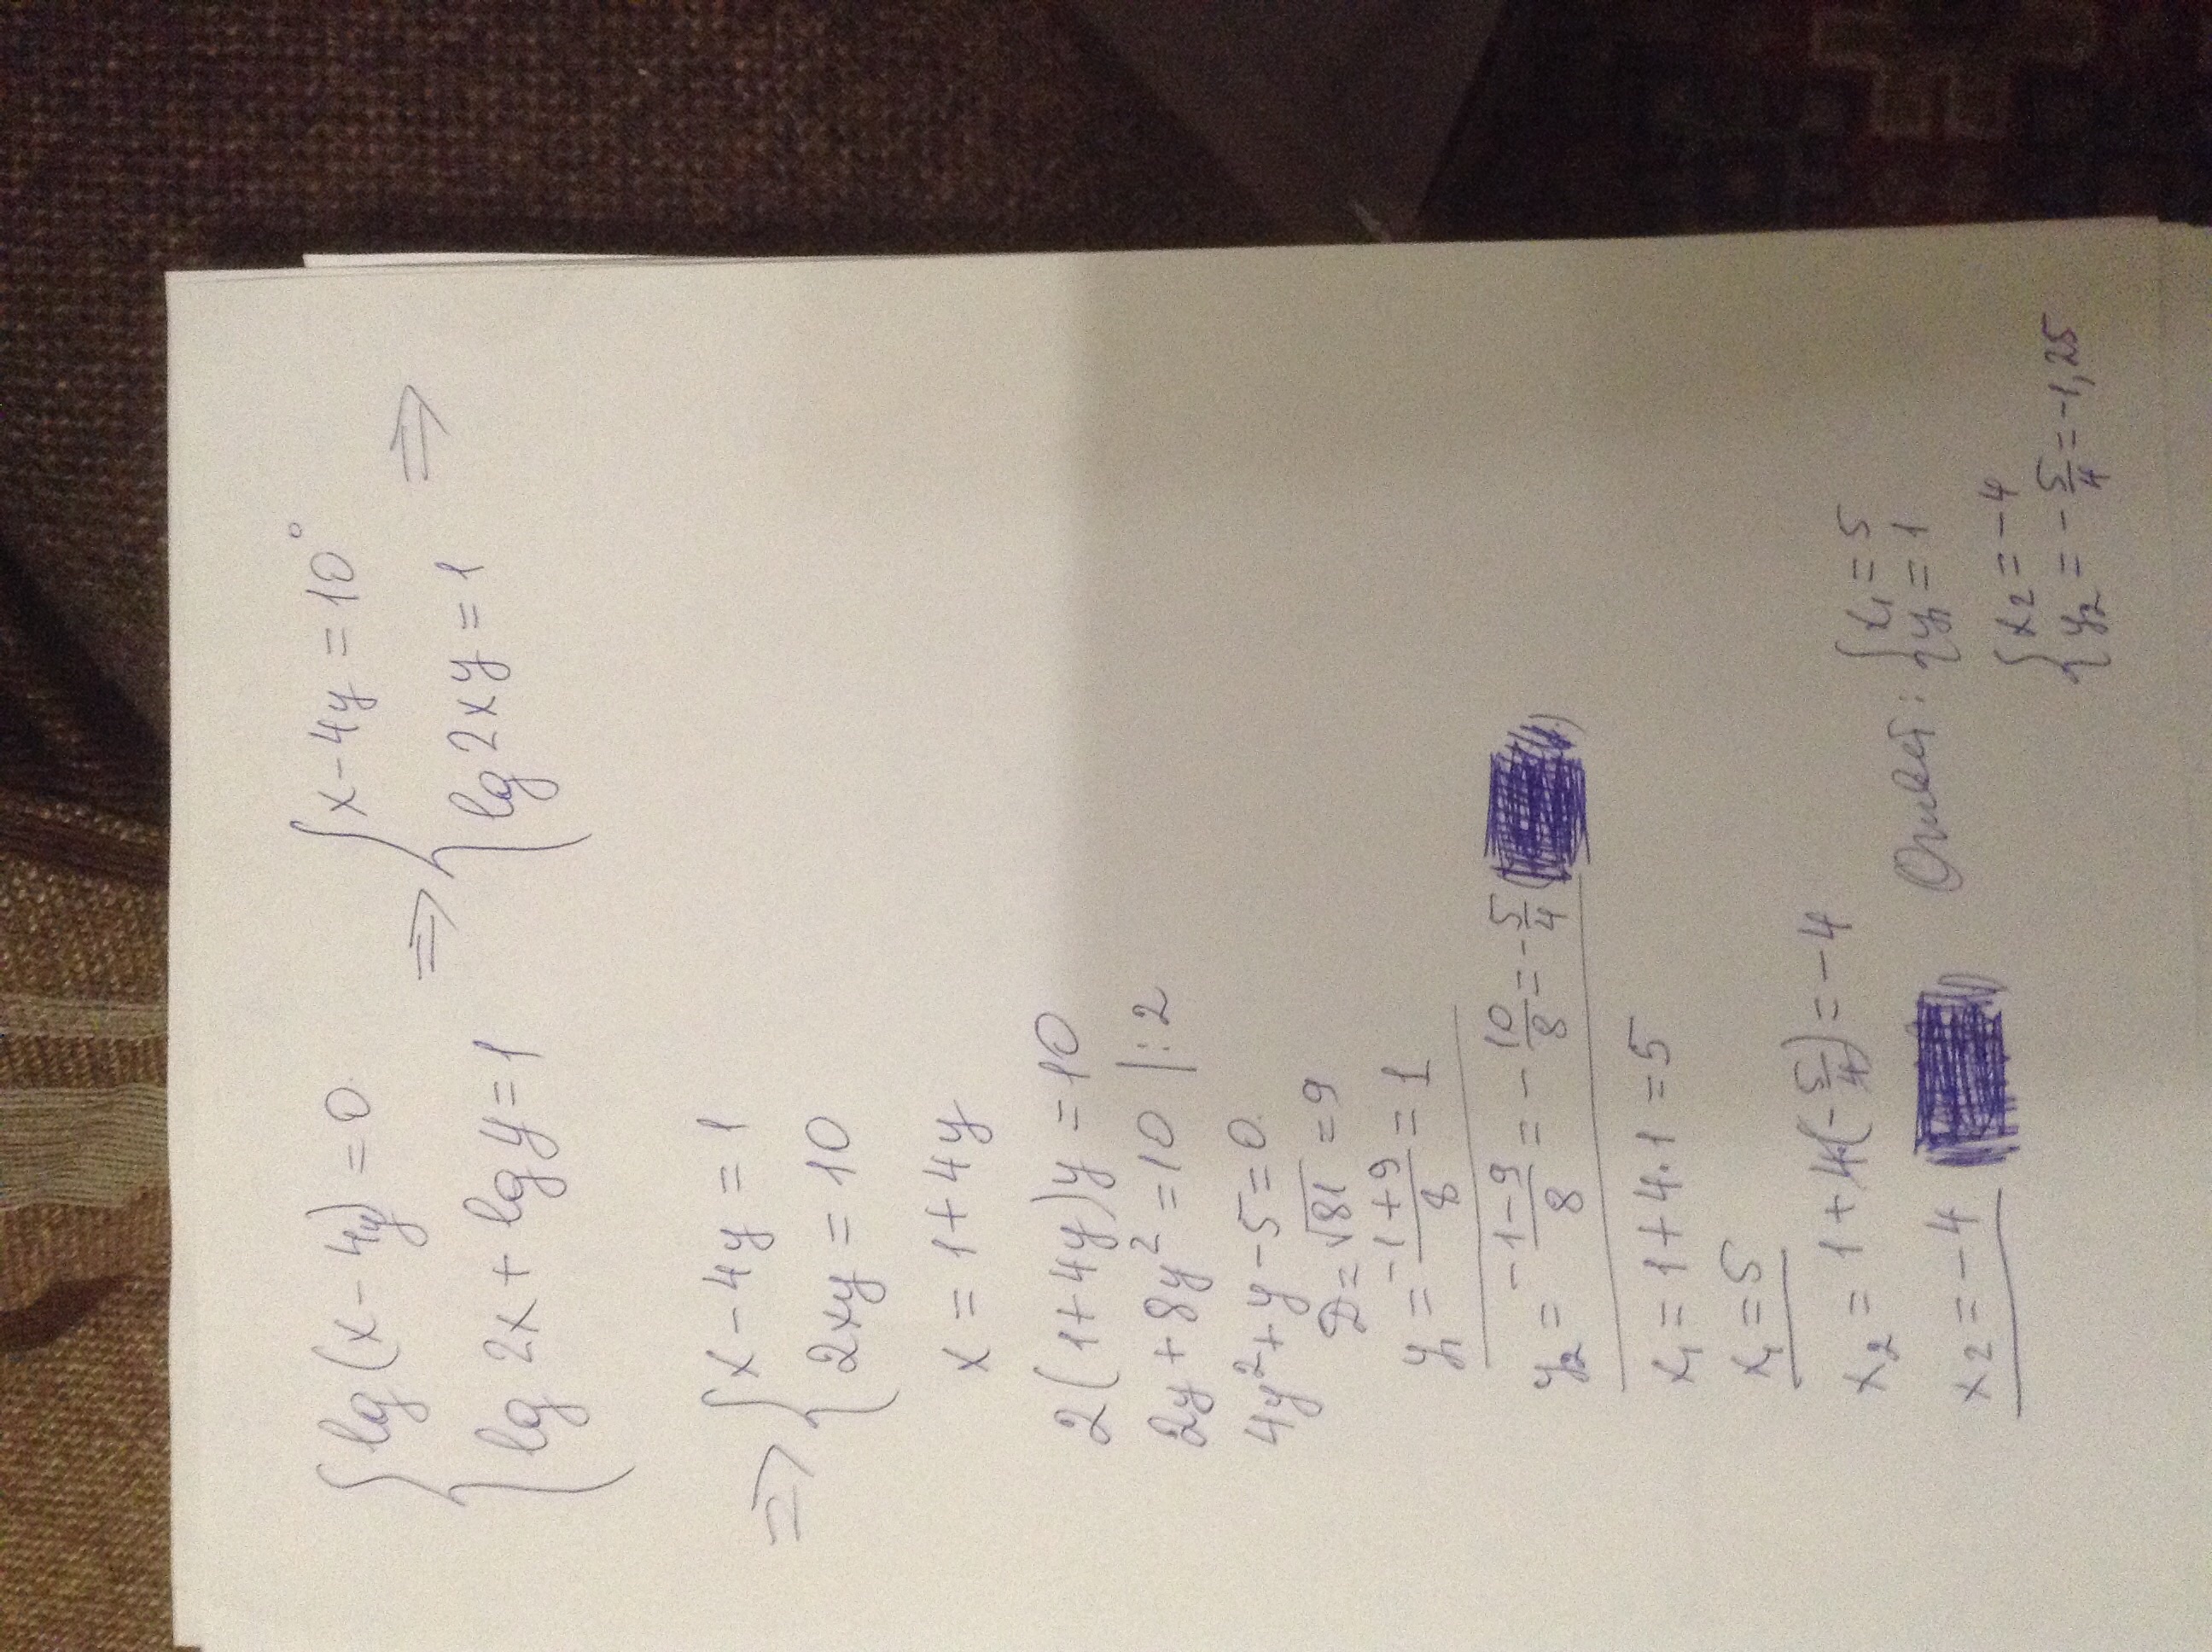 {lg(x-4y)=0 ⇒ {x-4y=10⁰ ⇒
{lg2x+lgy=1 {lg2xy=1
⇒ {x-4y=1
{2xy=10
x=1+4y
2(1+4y)y=10
2y+8y²=10 |:2
4y²+y-5=0
D=√81=9
y₁=(-1+9)/8=1
y₂=(-1-9)/8=-10/8=-5/4
x₁=1+4·1=5
x₁=5
x₂=1+4(-5/4)=-4
x₂=-4
Ответ: {x₁=5
{y₁=1
{x₂=-4
{y₂=-5/4=-1,25